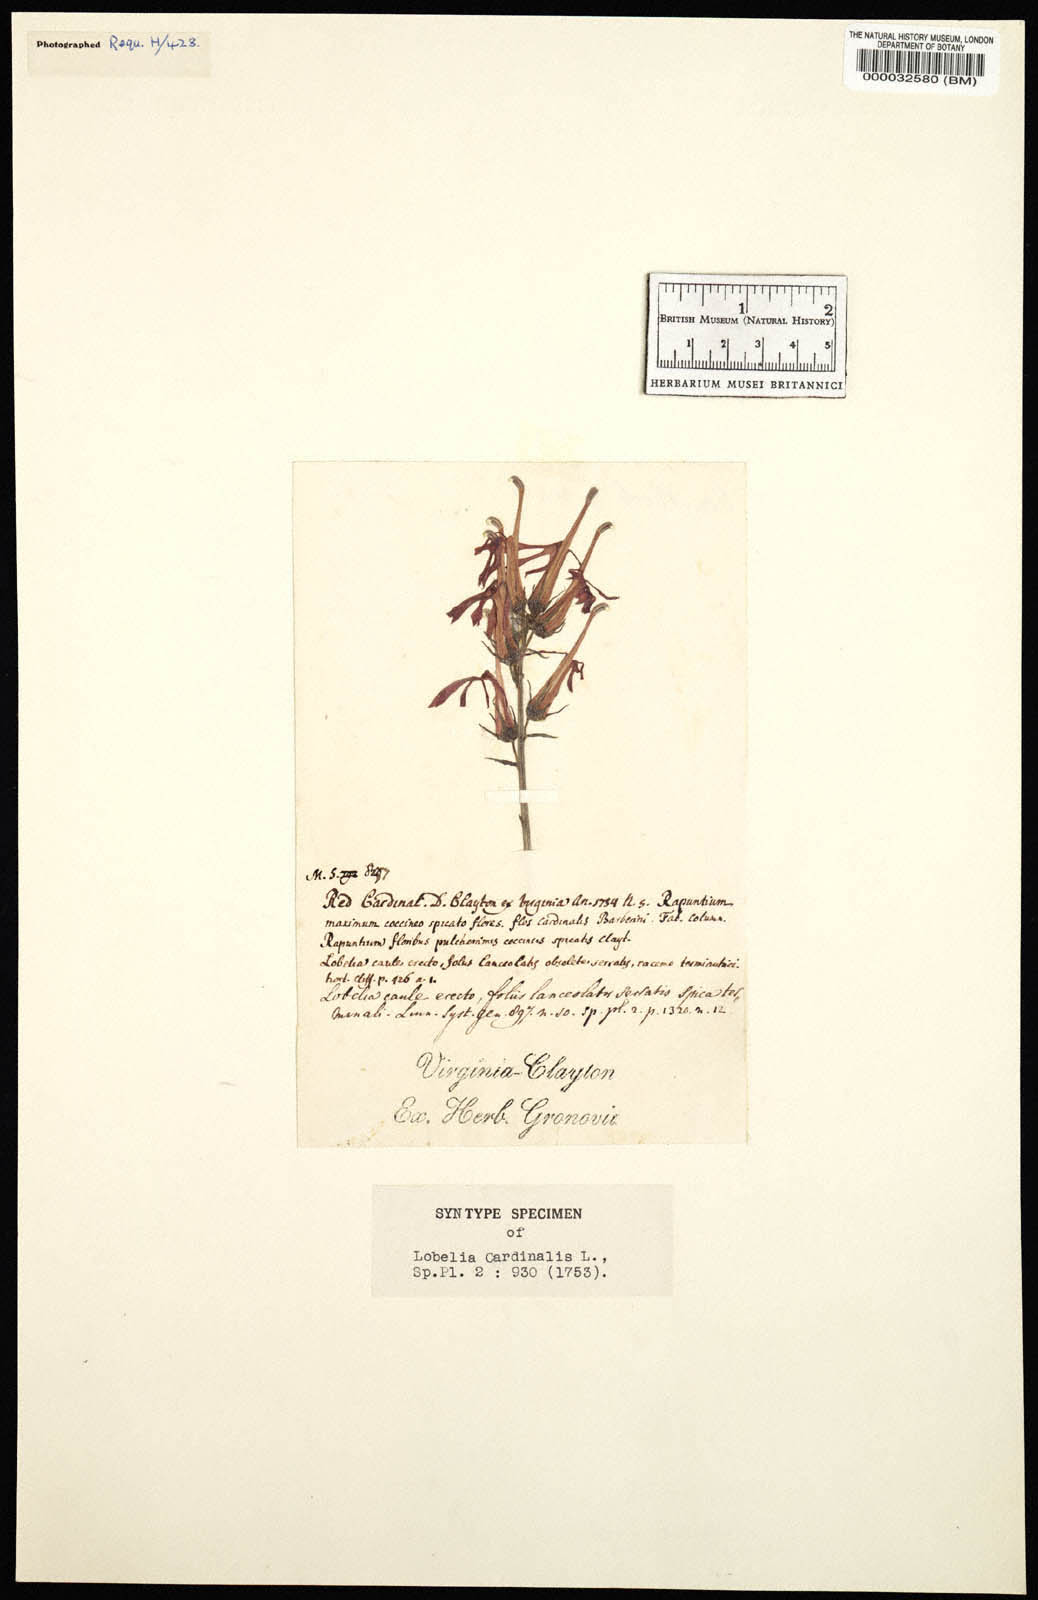 Photographed Requ. H/428.
THE NATURAL HISTORY MUSEUM, LONDON
DEPARTMENT OF BOTANY
000032580 (BM)
1 2
BRITISH MUSEUM (NATURAL HISTORY)
1 2 3 4 5
HERBARIUM MUSEI BRITANNICI
M. 5. 897
Red Cardinal. D. Clayton ex Virginia An. 1734 n. 5. Rapuntium
maximum coccineo spicato flore. flos Cardinalis Barberini. Fab. Column.
Rapuntium floribus pulcherrimis coccineis spicatis Clayt.
Lobelia caule erecto, foliis lanceolatis obsolete serratis, racemo terminatrici.
hort. Cliff. p. 426 a. 1.
Lobelia caule erecto, foliis lanceolatis serratis spica ter,
minali. Linn. Syst. gen. 897. n. 10. Sp. pl. 2. p. 1320. n. 12
Virginia-Clayton
Ex. Herb. Gronovii
SYNTYPE SPECIMEN
of
Lobelia Cardinalis L.,
Sp.Pl. 2 : 930 (1753).